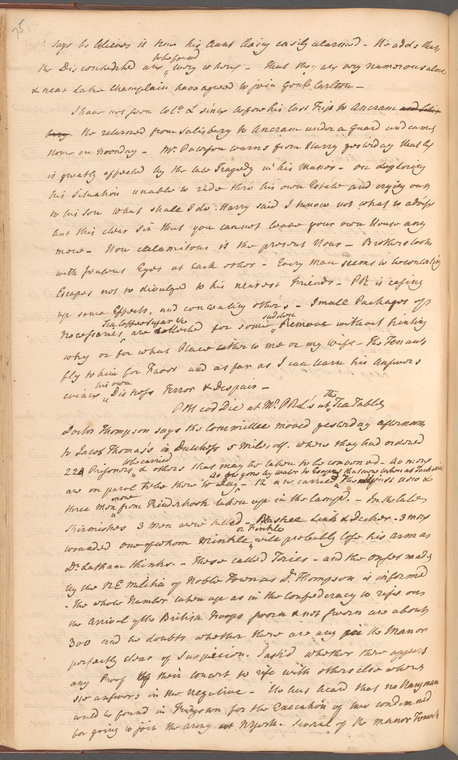 75
says he believes is true his Aunt being easily alarmed — He adds that
the Disconcerted are very where — that they are very numerous above
& near Lake Champlain have agreed to join Genl Carleton —
I have not seen Col. L since before his last Trip to Ancram
He returned from Salisbury to Ancram under a Guard and came
Home on Monday — Mr Pawson warns from Harry yesterday that he
is greatly affected by the late Tragedy in his Manor — on deploring
his Situation unable to ride thro his own Estate and crying out
to his son what shall I do Harry said I know not what to advise
but this clear Sir that you cannot leave your own House any
more — How calamitous is the present Hour — Brothers look
with jealous Eyes at each other — Every Man seems to be contemplating
Escapes not to divulged to his nearest Friends — PRL is casing
up some Effects, and concealing others — Small Packages of
Necessaries are collected for some sudden Remove without hinting
why or for what Place either to me or my wife — the Tenants
fly to him for Favor and as far as I can learn his Answers
evince his own Distress Terror & Despair —
PM and Die at Mr PRL's at the Tea Table
Doctor Thompson says the Committee moved yesterday afternoon
to Jacob Thomas's in Dutchess 5 Miles off. where they had ordered
22 Prisoners & others that may be taken to be conveyed — as many
are on parol to be there to Day — 12 are carried
three more Men from Kinderhook taken up in the Camp. — In the late
Skirmishes 3 men were killed & Decker. 3 more
wounded one of whom will probably lose his arm as
Dr Latham thinks. — These called Tories — and the onset made
by the NE Militia of Noble Town as Dr Thompson is informed
The whole Number taken up as in the Confederacy to rise on
the Arrival of the British Troops from & not sworn are about
300 and he doubts whether there are any in the Manor
perfectly clear of Suspicion. I ask'd whether there appears
any Proof of their concert to rise with others elsewhere
He answers in the Negative — He has heard that no Hangman
could be found in Kingston for the Execution of two condemned
for going to join the army at NYork. Several of the Manor Tenants